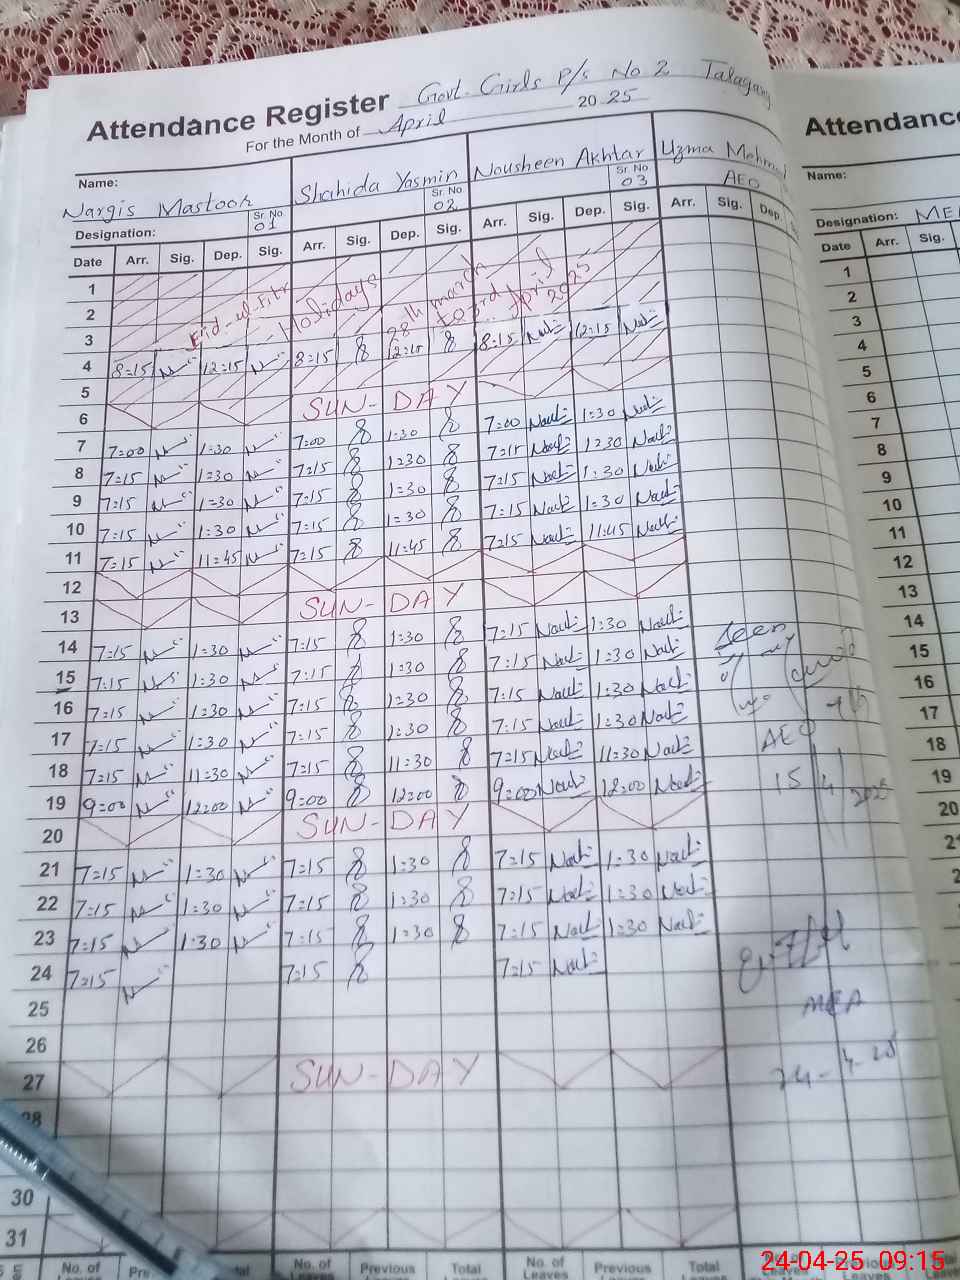 Attendance Register Govt. Girls P/s No 2 Talagang
For the Month of April 2025
Name: Nargis Mastoor Shahida Yasmin Nousheen Akhtar Uzma Mehmood
Designation: Sr. No 01 Sr. No 02 Sr. No 03 AEO
Date Arr. Sig. Dep. Sig. Arr. Sig. Dep. Sig. Arr. Sig. Dep. Sig. Arr. Sig. Dep.
1
2 Eid-ul-Fitr Holidays 28th march to 3rd April 2025
3
4 8:15 12:15 8:15 12:15 8:15 12:15
5
6 SUN-DAY
7 7:00 1:30 7:00 1:30 7:00 1:30
8 7:15 1:30 7:15 1:30 7:15 1:30
9 7:15 1:30 7:15 1:30 7:15 1:30
10 7:15 1:30 7:15 1:30 7:15 1:30
11 7:15 11:45 7:15 11:45 7:15 11:45
12
13 SUN-DAY
14 7:15 1:30 7:15 1:30 7:15 1:30
15 7:15 1:30 7:15 1:30 7:15 1:30
16 7:15 1:30 7:15 1:30 7:15 1:30
17 7:15 1:30 7:15 1:30 7:15 1:30
18 7:15 11:30 7:15 11:30 7:15 11:30
19 9:00 12:00 9:00 12:00 9:00 12:00
20 SUN-DAY
21 7:15 1:30 7:15 1:30 7:15 1:30
22 7:15 1:30 7:15 1:30 7:15 1:30
23 7:15 1:30 7:15 1:30 7:15 1:30
24 7:15 7:15 7:15
25
26
27 SUN-DAY
28
30
31
No. of Leaves No. of Leaves Previous Total No. of Leaves Previous Total
Seen
AEO
15/4/2025
MEA
24-4-25
Attendance
Name:
Designation: MEA
Date Arr. Sig.
1
2
3
4
5
6
7
8
9
10
11
12
13
14
15
16
17
18
19
20
24-04-25 09:15